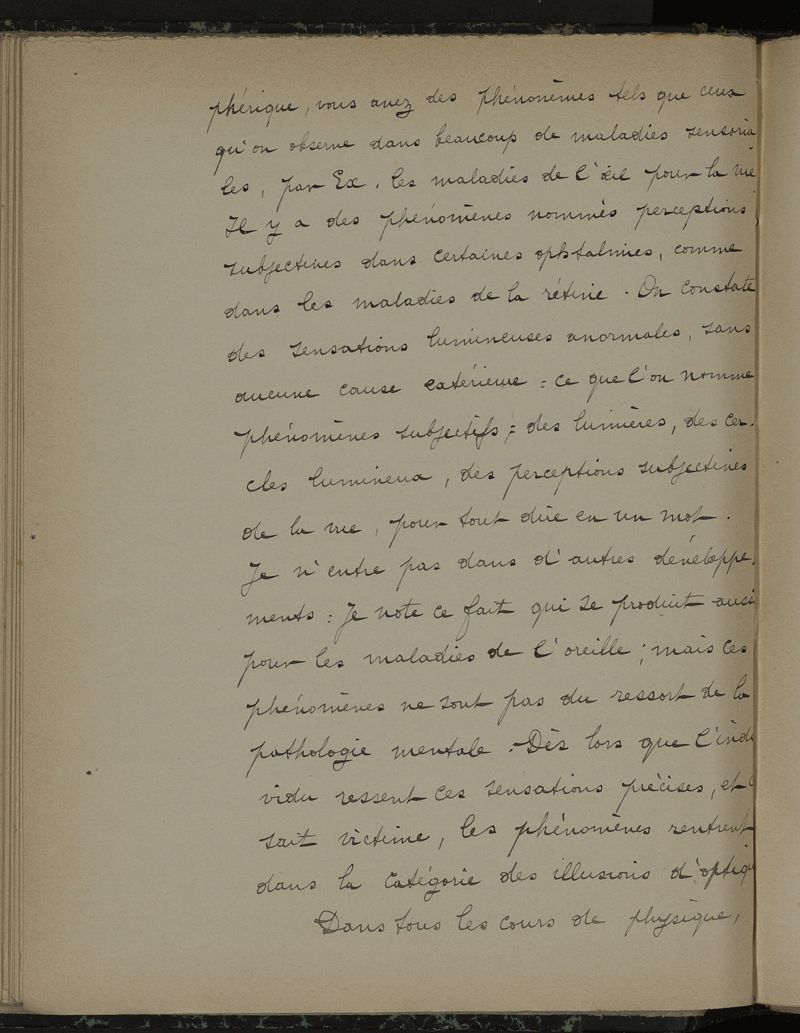 phérique, vous avez des phénomènes tels que ceux
qu'on observe dans beaucoup de maladies sensoria
les, par Ex. les maladies de l'œil pour la vue
Il y a des phénomènes nommés perceptions
subjectives dans certaines ophtalmies, comme
dans les maladies de la rétine. On constate
des sensations lumineuses anormales, sans
aucune cause extérieure = ce que l'on nomme
phénomènes subjectifs = des lumières, des cer-
cles lumineux, des perceptions subjectives
de la vue, pour tout dire en un mot.
Je n'entre pas dans d'autres développe-
ments : Je note ce fait qui se produit aussi
pour les maladies de l'oreille ; mais ces
phénomènes ne sont pas du ressort de la
pathologie mentale. Dès lors que l'indi
vidu ressent ces sensations précises, et
sait victime, les phénomènes rentrent
dans la catégorie des illusions d'optiqu
Dans tous les cours de physique,